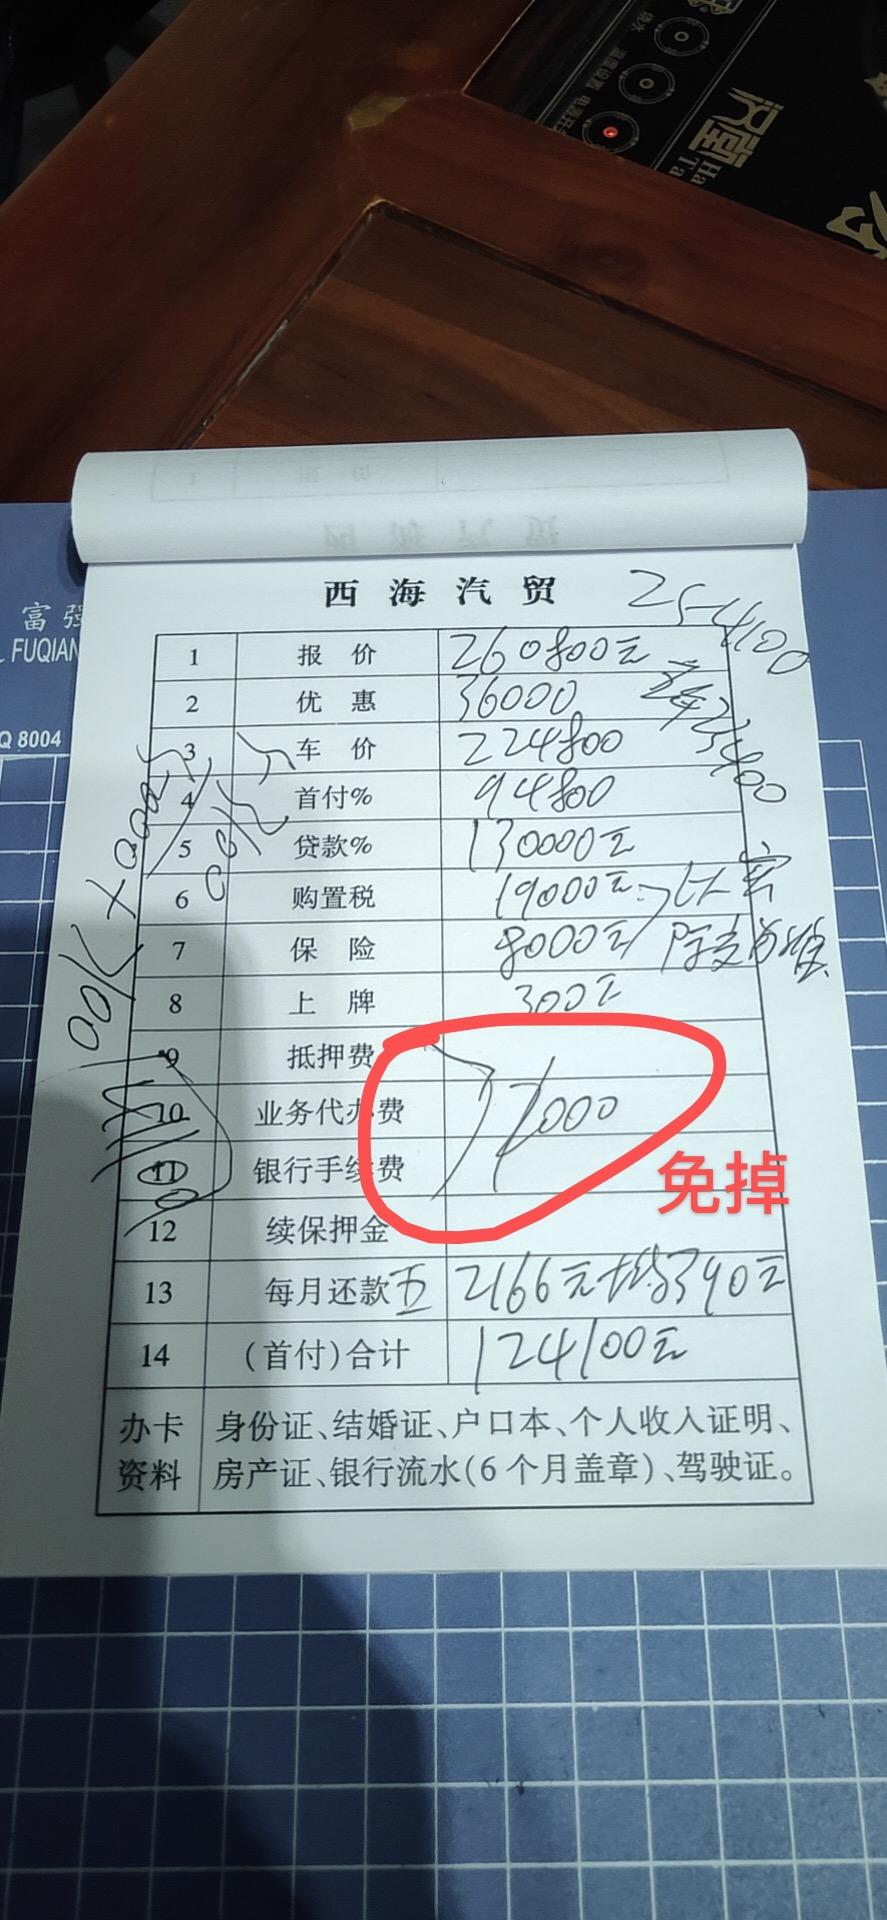 西海汽贸
254100
1 报价 260800元
2 优惠 36000
3 车价 224800
4 首付% 94800
5 贷款% 130000元
6 购置税 19000元
7 保险 8000元
8 上牌 300元
9 抵押费
10 业务代办费 2000
11 银行手续费
免掉
12 续保押金
13 每月还款 五 2166元+息390元
14 (首付)合计 124100元
办卡资料 身份证、结婚证、户口本、个人收入证明、
房产证、银行流水(6个月盖章)、驾驶证。
富强
FUQIAN
Q 8004